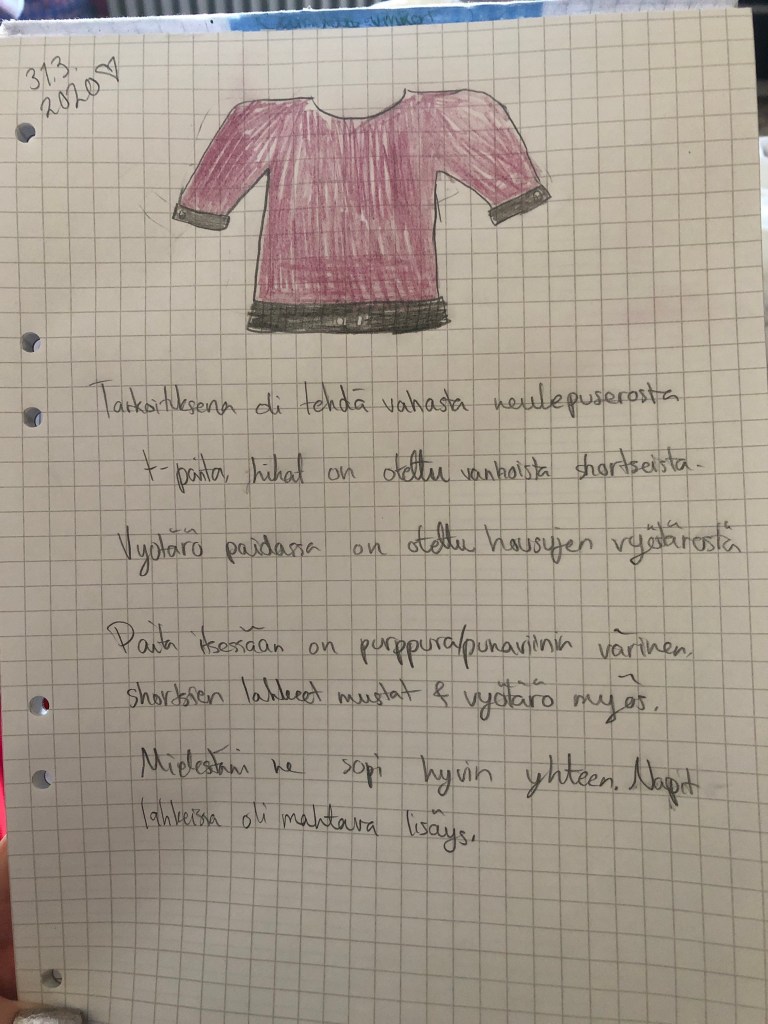 31.3.
2020 ♡
Tarkoituksena oli tehdä vahasta neulepuserosta
t-paita, hihat on otettu vanhoista shortseista.
Vyötärö paidassa on otettu housujen vyötäröstä
Paita itsessään on purppura/punaviinin värinen,
shortsien lahkeet mustat & vyötärö myös.
Mielestäni ne sopi hyvin yhteen. Napit
lahkeissa oli mahtava lisäys.